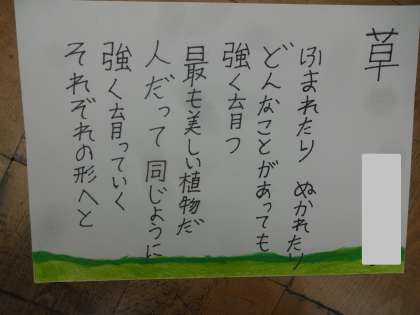 草
ふまれたり ぬかれたり
どんなことがあっても
強く育つ
最も美しい植物だ
人だって同じように
強く育っていく
それぞれの形へと